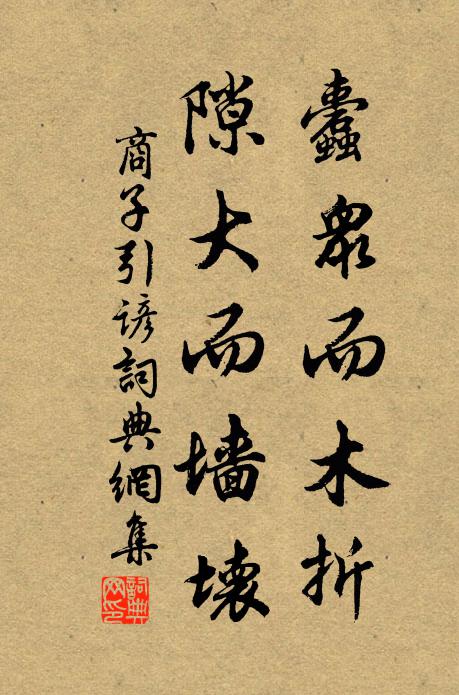 蠹衆而木折
隙大而墻壞
商子引諺詞典網集
詞典網印